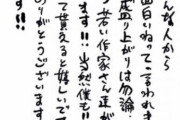 んな人から
面白いねって言われま
盛り上がりは勿論、
若い作家さん達が
ます!!当然僕も!!
て貰えると嬉しいで
ありがとうございます